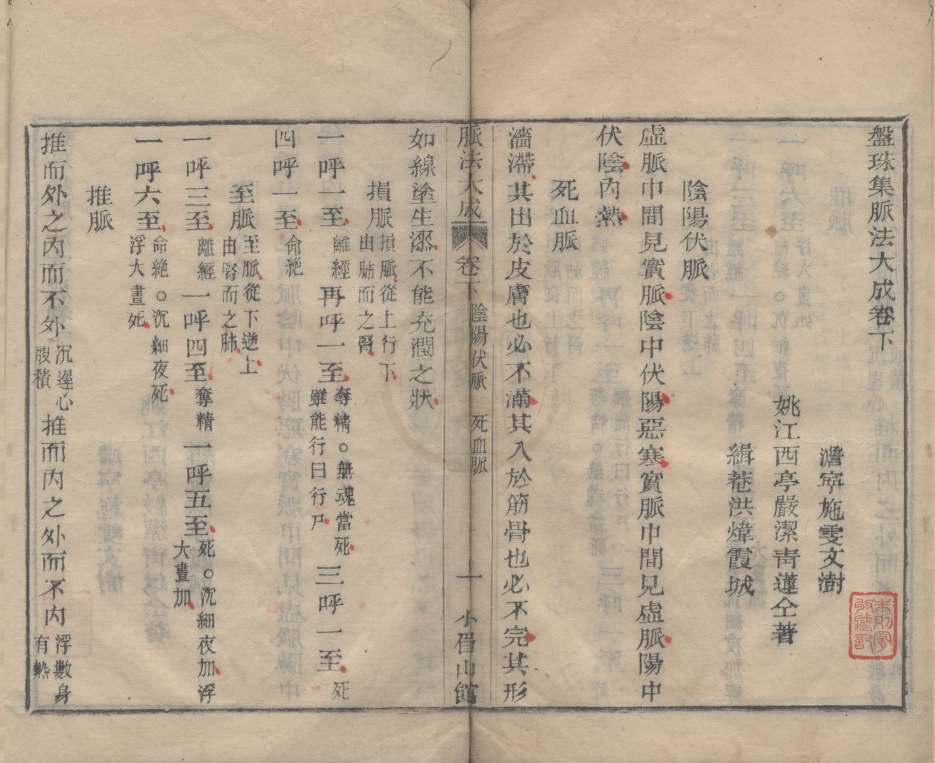 盤珠集脈法大成卷下
澹寧施雯文澍
姚江西亭嚴潔青蓮仝著
緝菴洪煒霞城
陰陽伏脈
虛脈中間見實脈陰中伏陽惡寒實脈中間見虛脈陽中
伏陰內熱
死血脈
濇滯其出於皮膚也必不滿其入於筋骨也必不完其形
脈法大成 卷下 陰陽伏脈 死血脈 一 小眉山館
如線塗生漆不能充潤之狀
損脈 損脈從上行下由肺而之腎
一呼一至 離經 再呼一至 奪精○無魂當死雖能行曰行尸 三呼一至 死
四呼一至 命絶
至脈 至脈從下逆上由腎而之肺
一呼三至 離經 一呼四至 奪精 一呼五至 死○沉細夜加浮大晝加
一呼六至 命絶○沉細夜死浮大晝死
推脈
推而外之內而不外 沉遲心腹積 推而內之外而不內 浮數身有熱